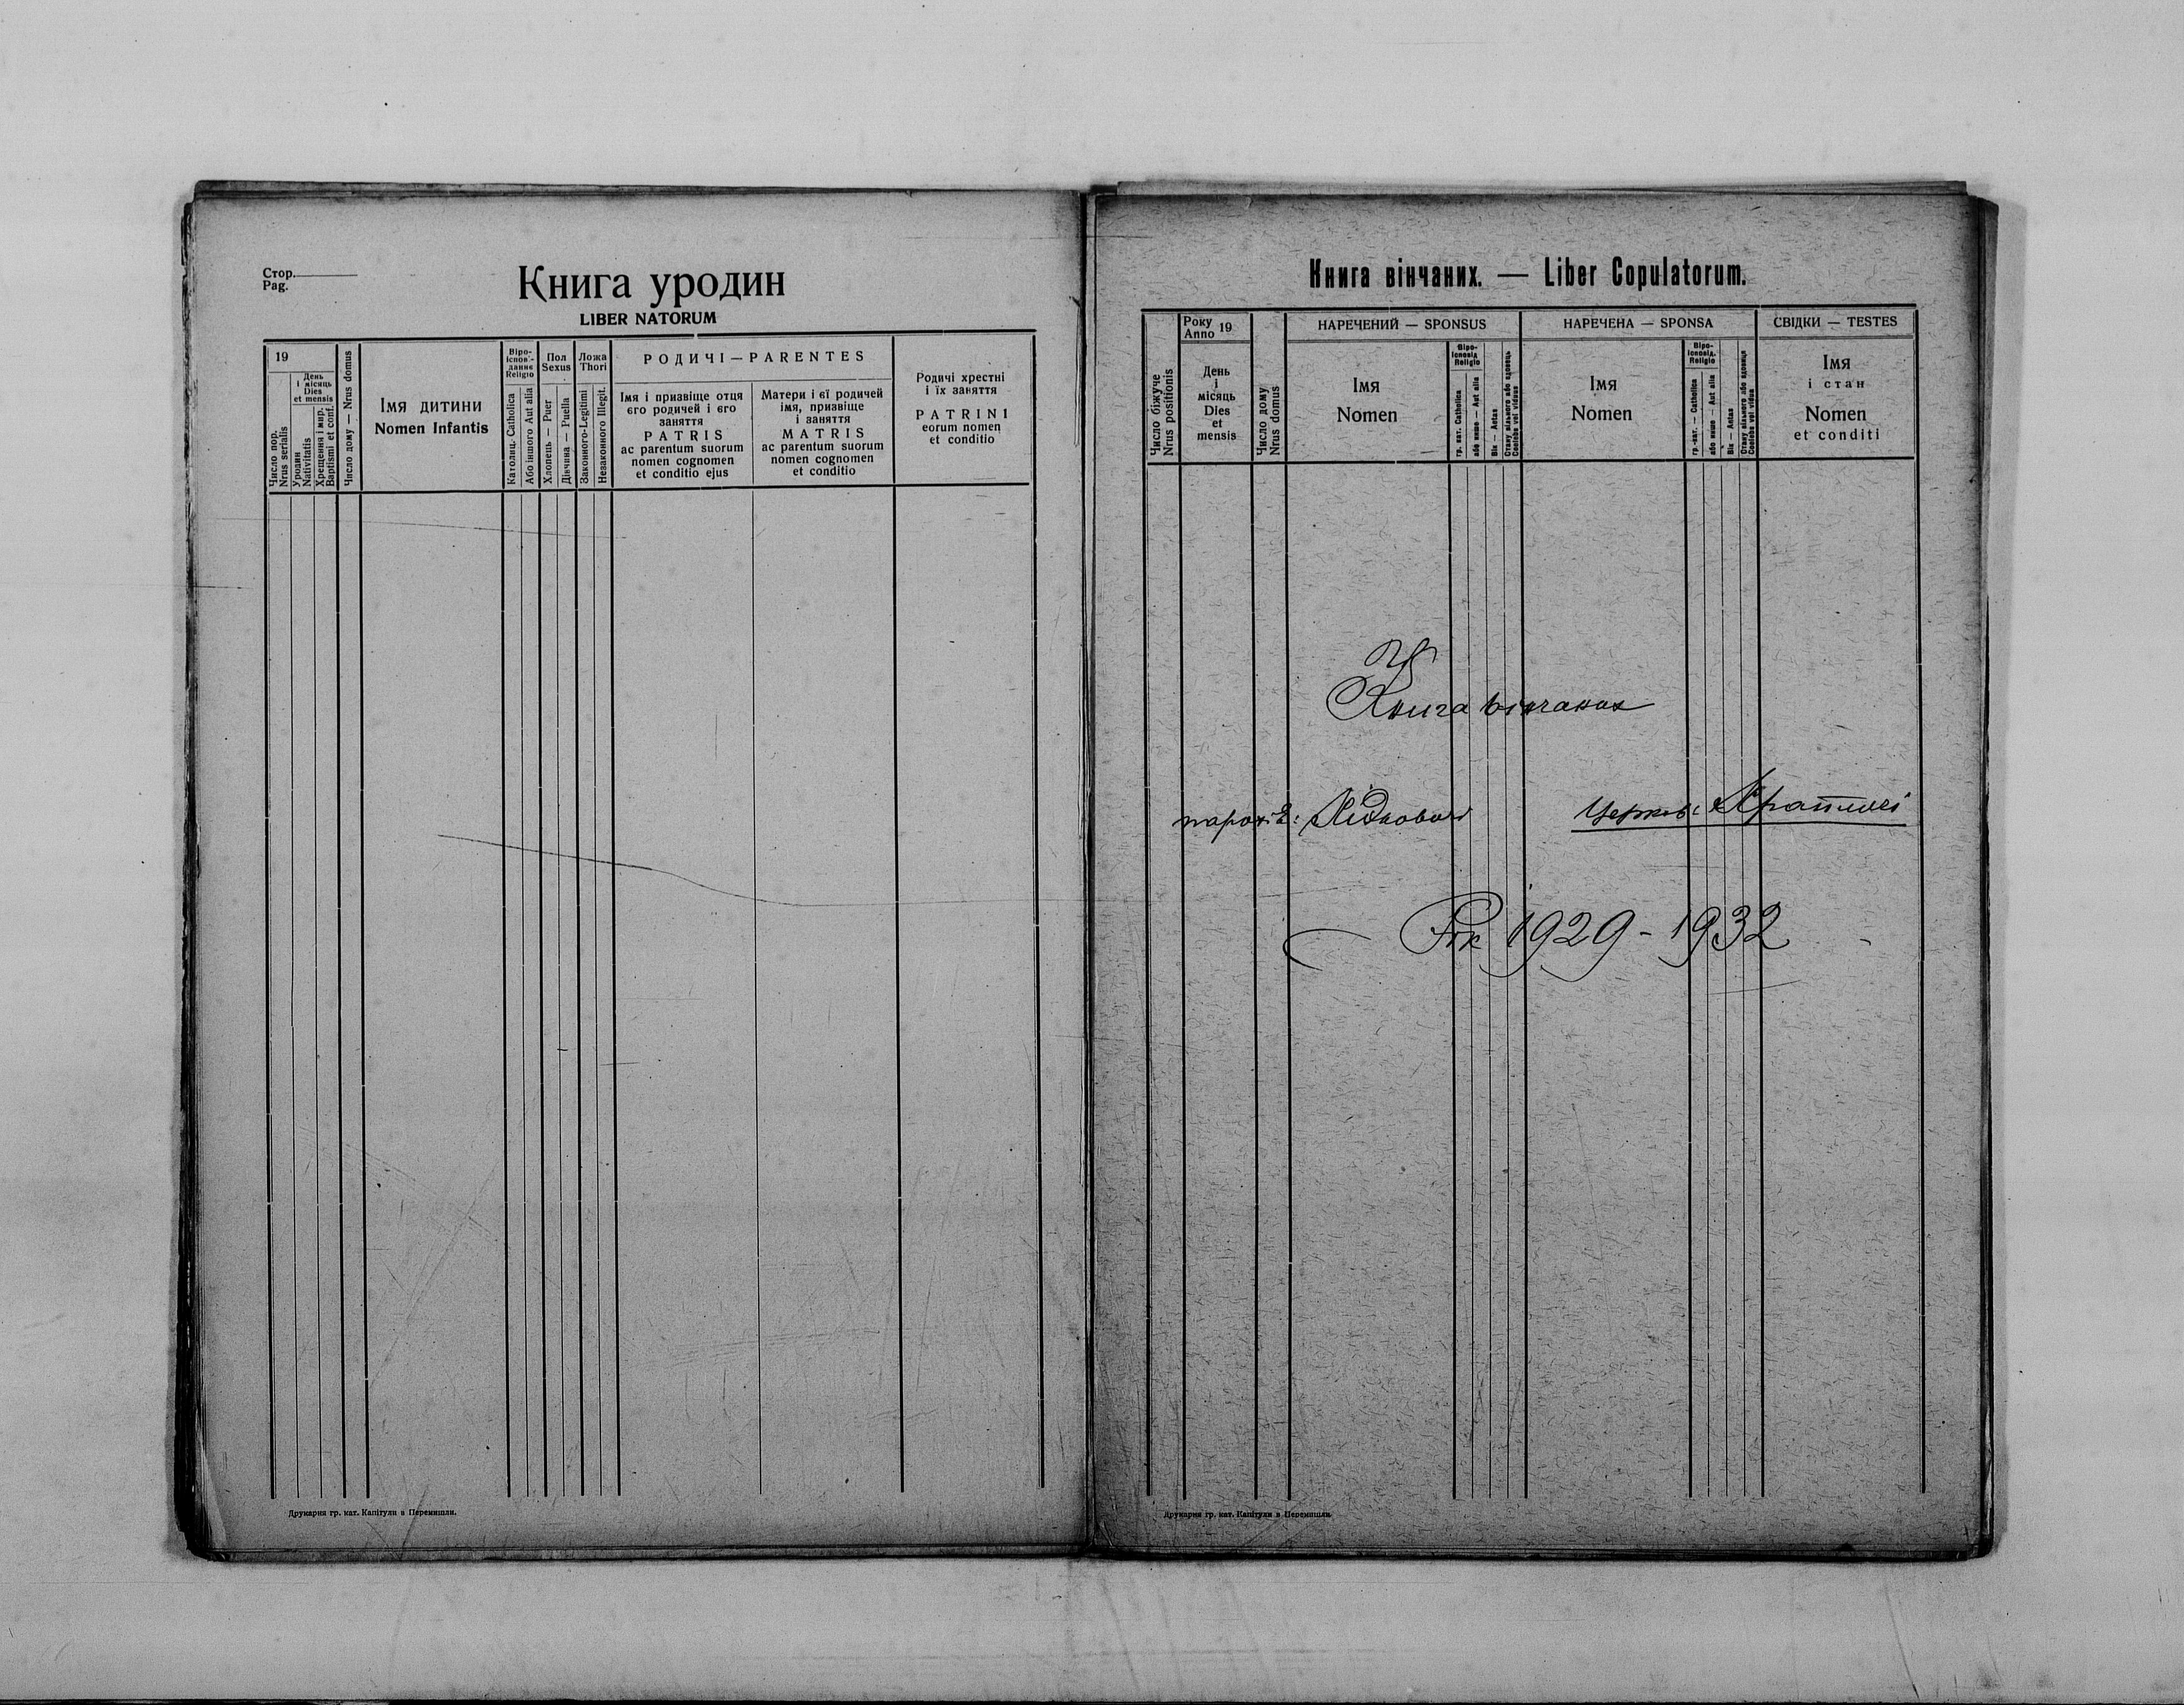 Стор.
Pag.
Книга уродин
LIBER NATORUM
19
День
і місяць
Dies
et mensis
Число пор.
Nrus serialis
Уродин
Nativitatis
Хрещення і мир.
Baptismi et conf.
Число дому — Nrus domus
Імя дитини
Nomen Infantis
Віро-
ісповѣ-
данне
Religio
Католиц. Catholica
Або іншого Aut alia
Пол
Sexus
Хлопець — Puer
Дівчина — Puella
Ложа
Thori
Законного-Legitimi
Незаконного Illegit.
РОДИЧІ — PARENTES
Імя і призвіще отця
єго родичей і єго
заняття
PATRIS
ac parentum suorum
nomen cognomen
et conditio ejus
Матери і єї родичей
імя, призвіще
і заняття
MATRIS
ac parentum suorum
nomen cognomen
et conditio
Родичі хрестні
і їх заняття
PATRINI
eorum nomen
et conditio
Друкарня гр. кат. Капітули в Перемишли.
Книга вінчаних. — Liber Copulatorum.
Число біжуче
Nrus positionis
Року
Anno 19
День
і
місяць
Dies
et
mensis
Число дому
Nrus domus
НАРЕЧЕНИЙ — SPONSUS
Імя
Nomen
Віро-
ісповід
Religio
гр. кат. — Catholica
або инше — Aut alia
Вік — Aetas
Стану вільного або вдовець
Coelebs vel viduus
НАРЕЧЕНА — SPONSA
Імя
Nomen
Віро-
ісповід.
Religio
гр.-кат. — Catholica
або инше — Aut alia
Вік — Aetas
Стану вільного або вдовиця
Coelebs vel vidua
СВІДКИ — TESTES
Імя
і стан
Nomen
et conditi
Книга вінчаних
церков:
Рік 1929 - 1932
Друкарня гр. кат. Капітули в Перемишли.